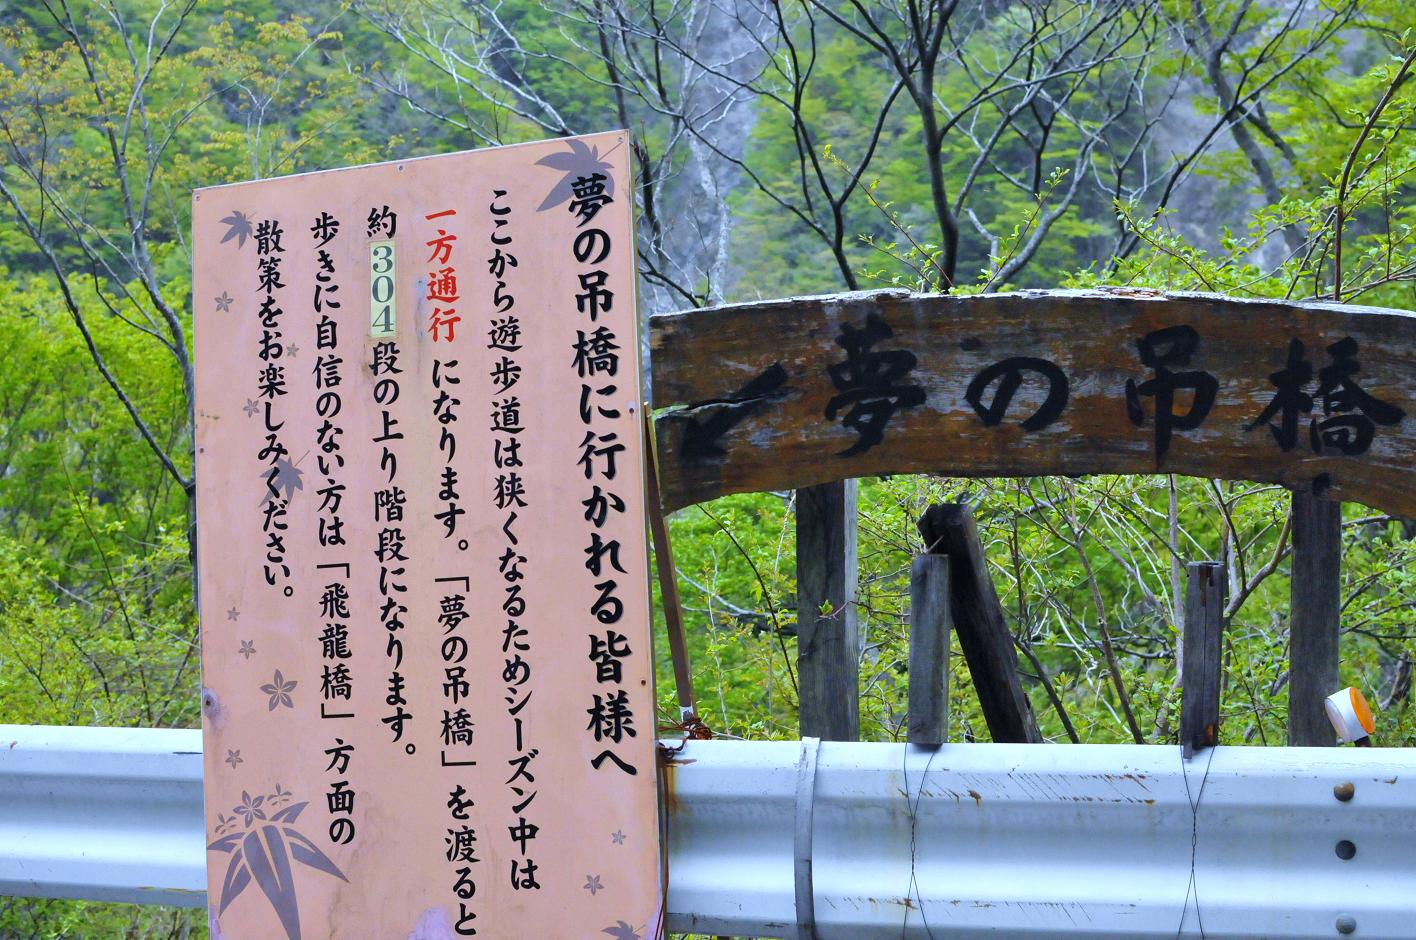 夢の吊橋に行かれる皆様へ
ここから遊歩道は狭くなるためシーズン中は
一方通行になります。「夢の吊橋」を渡ると
約304段の上り階段になります。
歩きに自信のない方は「飛龍橋」方面の
散策をお楽しみください。
夢の吊橋